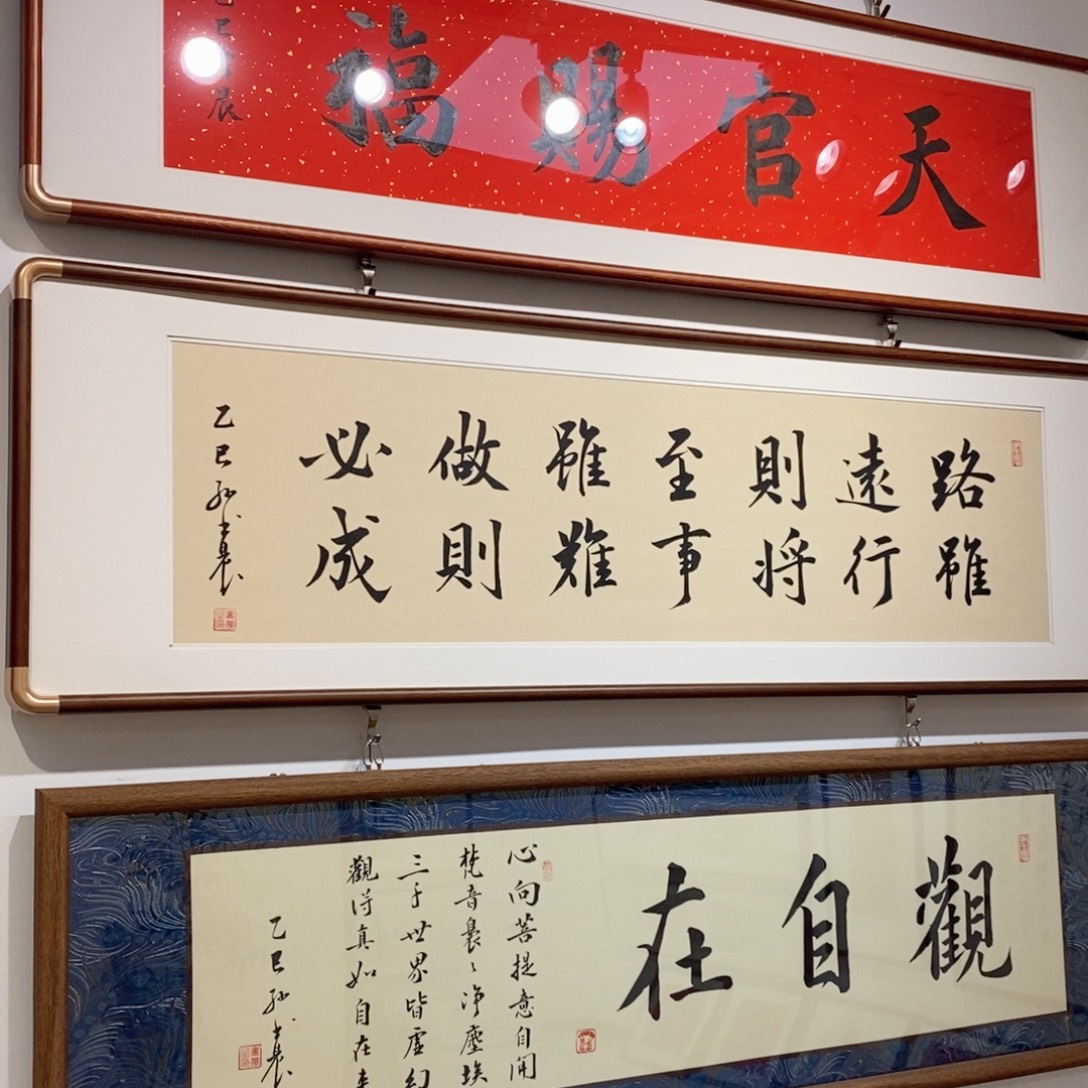 天官賜福
乙巳
路雖
遠行
則将
至事
雖難
做則
必成
乙巳
觀自在
心向菩提意自開
梵音裊〻净塵埃
三千世界皆虛幻
觀得真如自在
乙巳